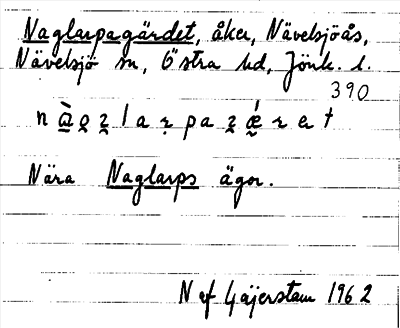 Naglarpagärdet, åker, Nävelsjöås,
Nävelsjö sn, Östra hd, Jönk. l.
390
Nära Naglarps ägor.
N af Geijerstam 1962